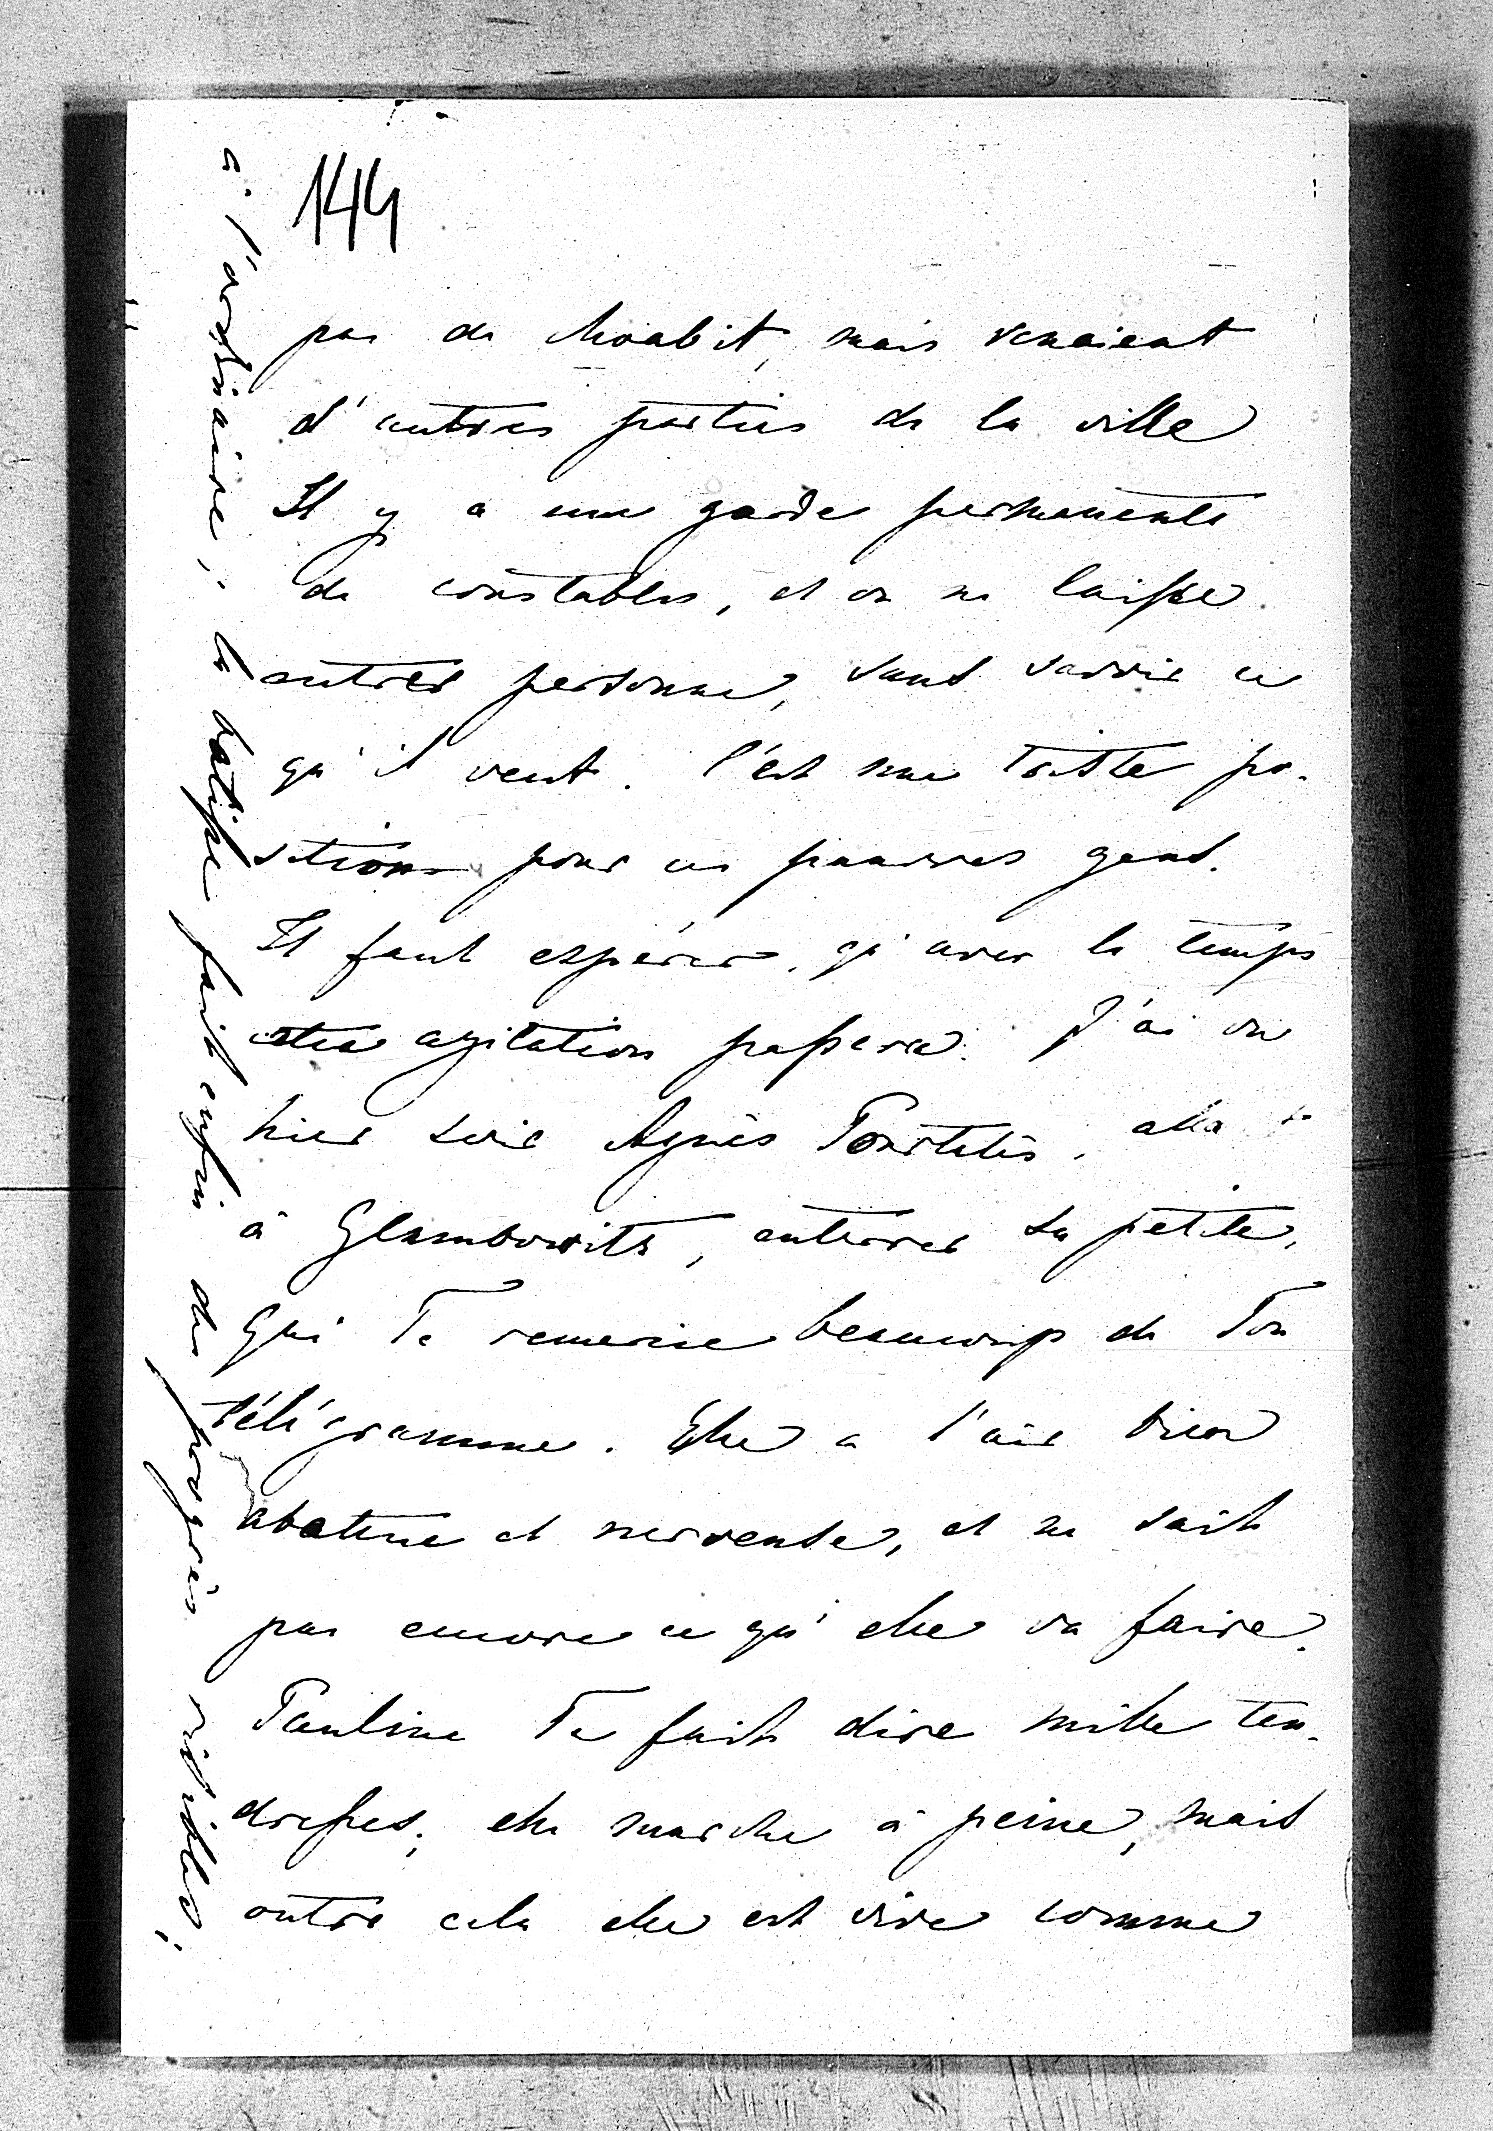 144
pas de Moabit, mais venaient
d'autres parties de la ville
Il y a une garde permanente
de constables, et on ne laisse
entrer personne, sans savoir ce
qu'il veut. C'est une triste po-
sition pour ces pauvres gens.
Il faut espérer, qu'avec le temps
cette agitation passera. J'ai vu
hier soir Agnès Pourtalès,
à Glambowitz, enterrer sa petite,
qui Te remercie beaucoup de Ton
télégramme. Elle a l'air bien
abattue et nerveuse, et ne sait
pas encore ce qu'elle va faire.
Pauline Te fait dire mille ten-
dresses; elle marche à peine, mais
outre cela elle est vive comme
à l'ordinaire; la bâtisse fait enfin des progrès visibles;